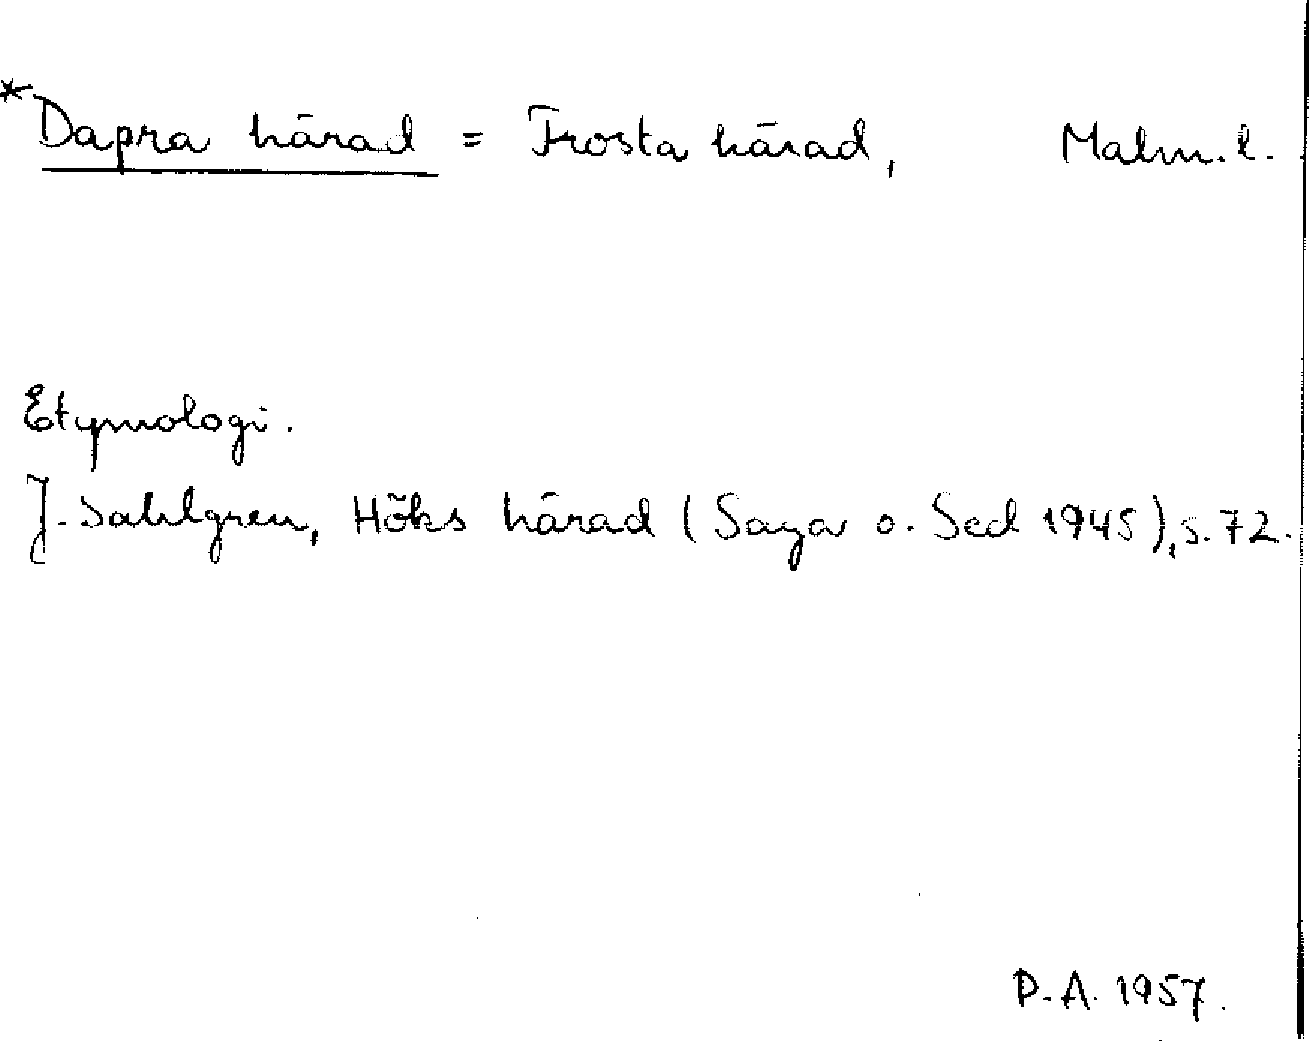 *Dapra härad = Frosta härad, Malm. l.
Etymologi.
J. Sahlgren, Höks härad (Saga o. Sed 1945), s. 72.
P. A. 1957.